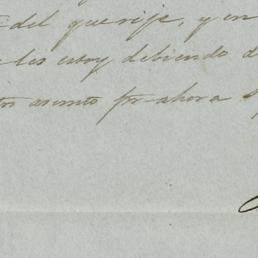 del que rije, y en
les estoy debiendo d
asunto por ahora